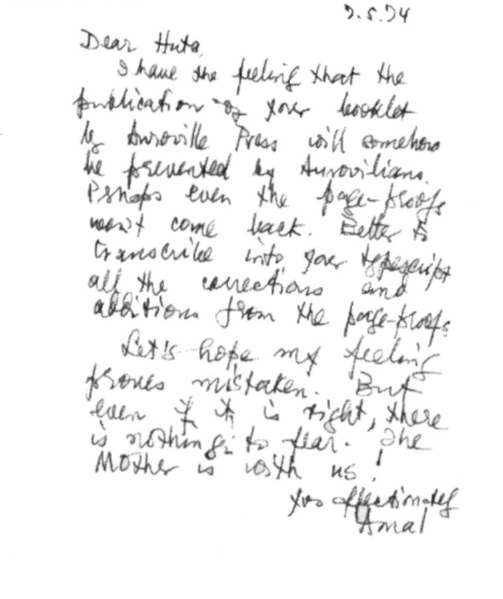 7.5.74
Dear Huta,
I have the feeling that the
publication of your booklet
by Auroville Press will somehow
be prevented by Aurovilians.
Perhaps even the page-proofs
won't come back. Better to
transcribe into your typescript
all the corrections and
additions from the page-proofs.
Let's hope my feeling
proves mistaken. But
even if it is right, there
is nothing to fear. The
Mother is with us!
Yrs affectionately
Amal